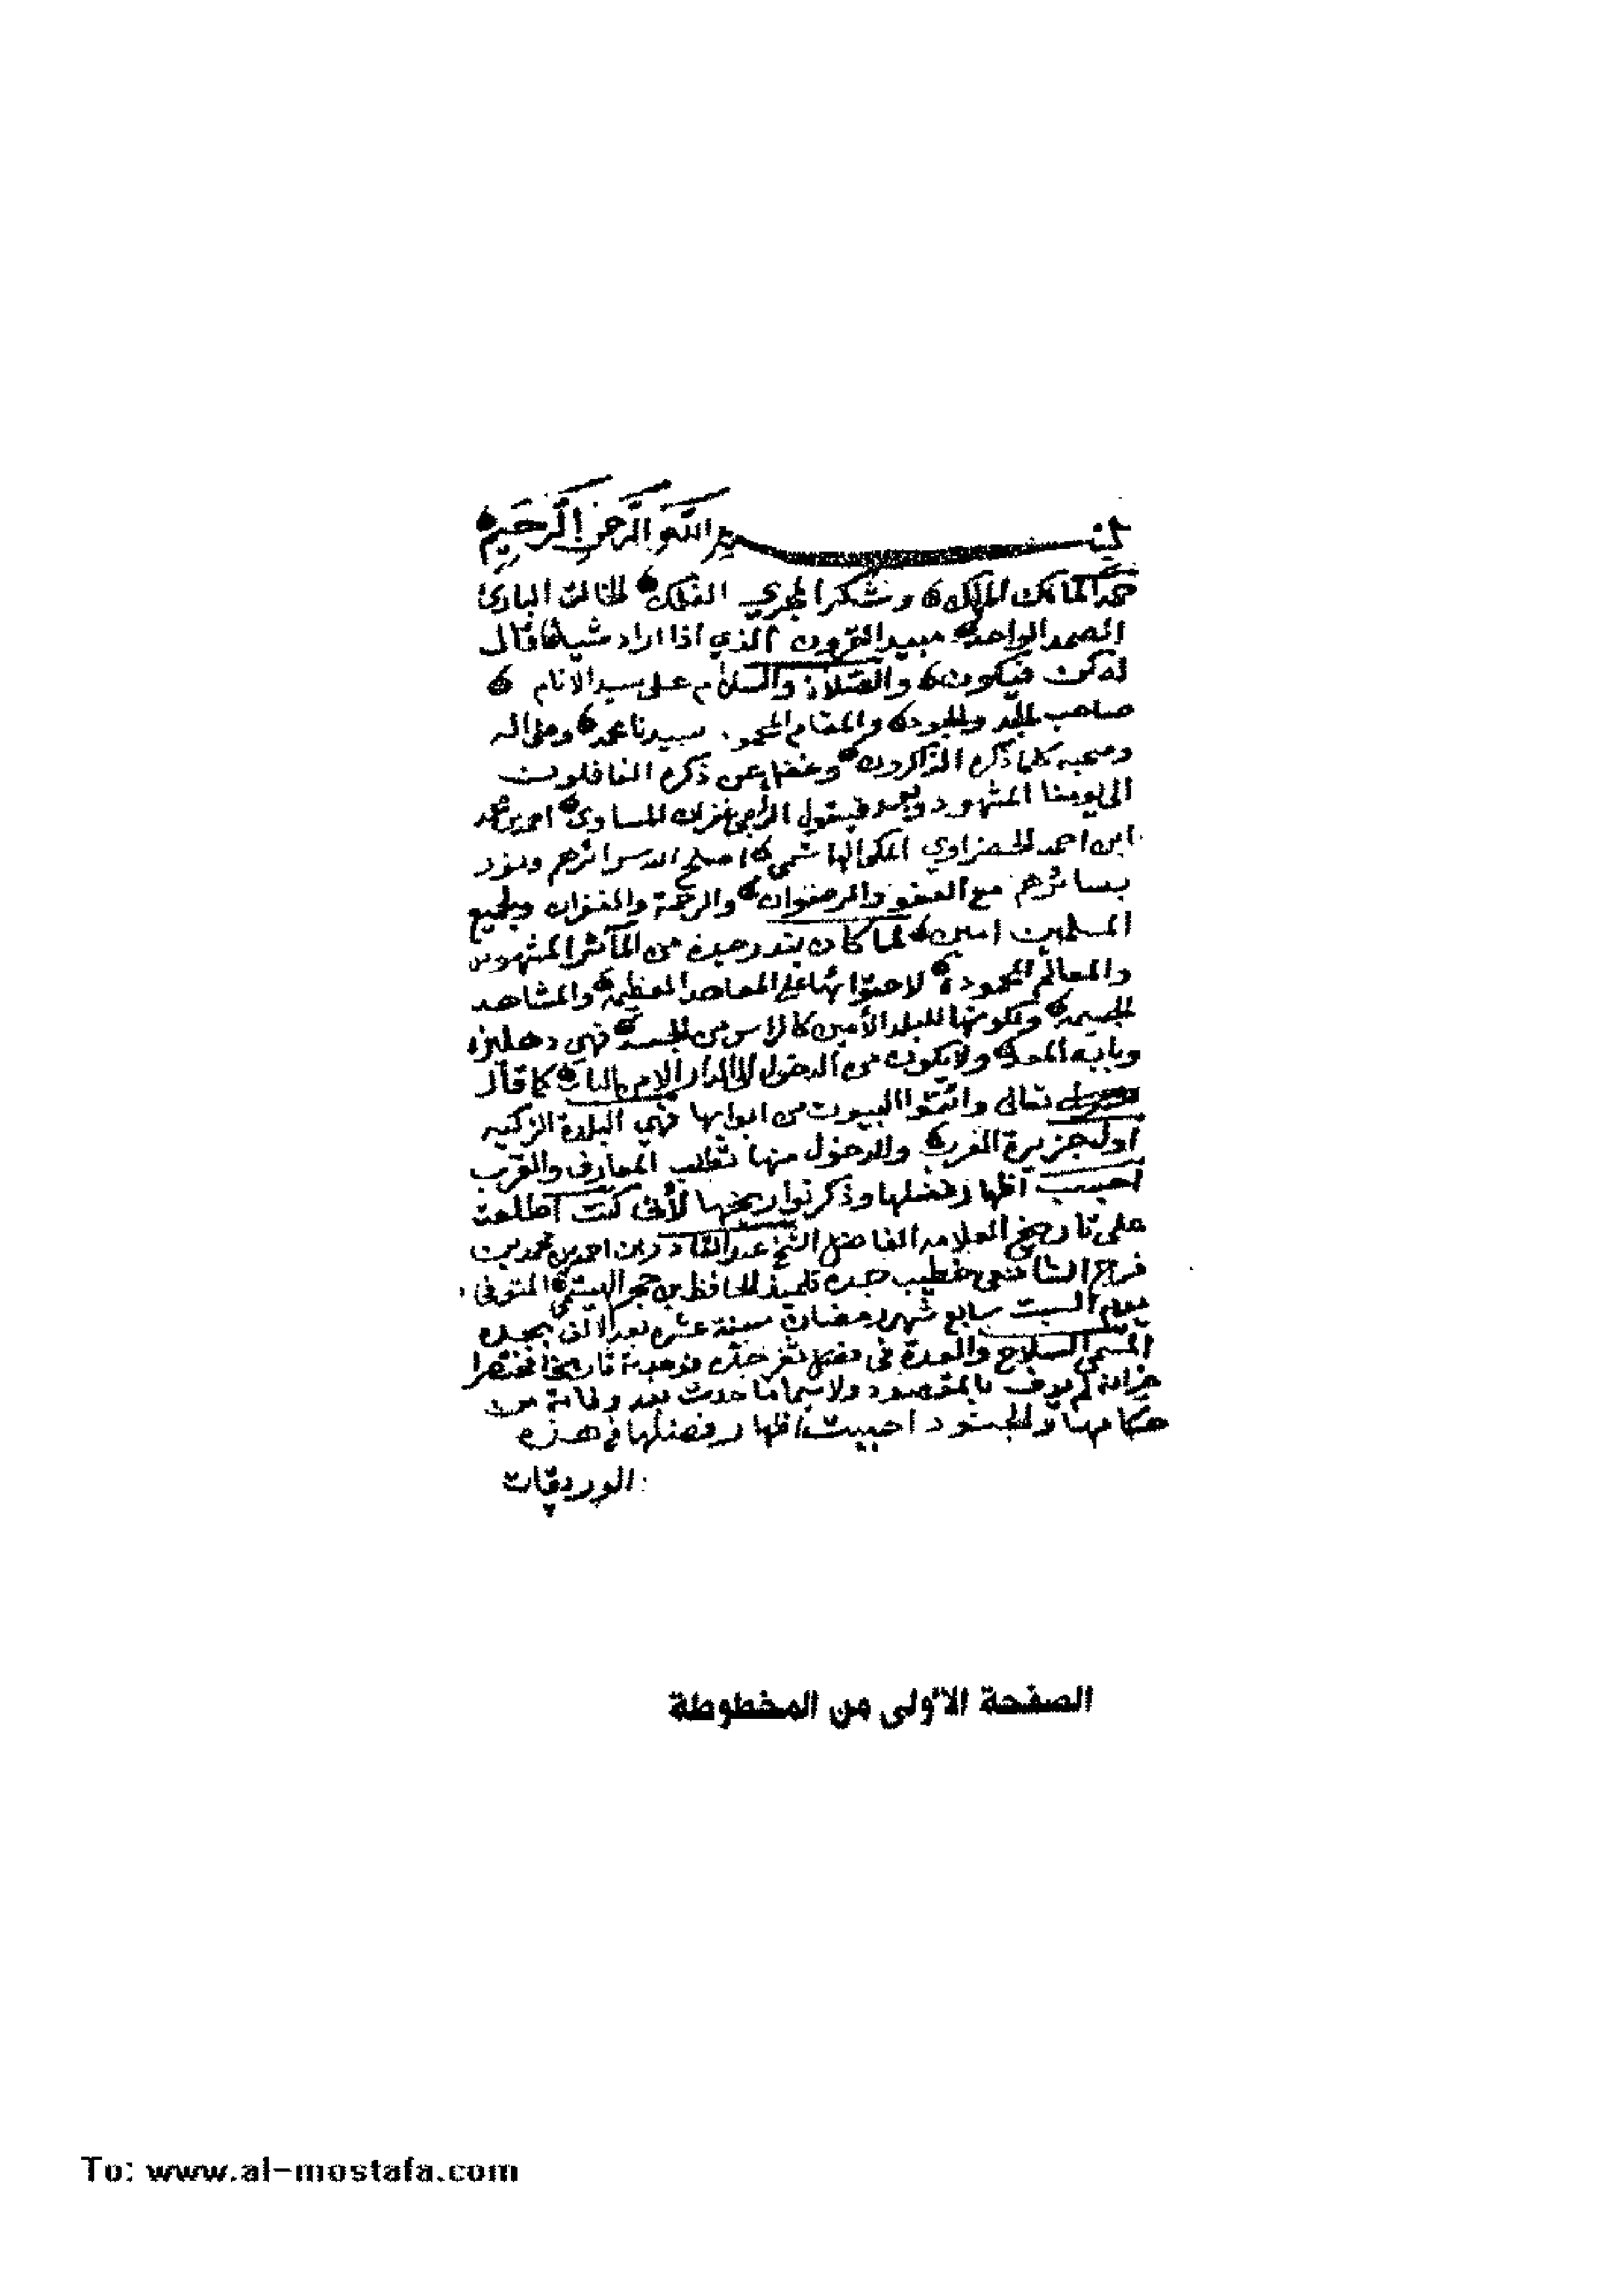 بسم الله الرحمن الرحيم
حمدا لمالك الملك وشكرا لمجري الفلك الخالق البارئ
الصمد الواحد مبيد القرون الذي اذا اراد شيئا قال
له كن فيكون والصلاة والسلام على سيد الانام
صاحب المجد والجود والمقام المحمود سيدنا محمد وعلى اله
وصحبه كلما ذكره الذاكرون وغفل عن ذكره الغافلون
الى يومنا المشهود وبعد فيقول الراجي غفران المساوى احمد بن محمد
ابن احمد الحضراوي المكي الهاشمي اصلح الله سرائرهم ونور
بصائرهم مع العفو والرضوان والرحمة والغفران ولجميع
المسلمين امين لما كان بندر جدة من المآثر المشهورة
والمعالم المحمودة لاحتوائها على المعاهد العظيمة والمشاهد
الجسيمة ولكونها للبلد الأمين كالراس من الجسد فهي دهليزه
وبابه المعد ولا يكون من الدخول الى الدار إلا من الباب كما قال
تعالى وائتوا البيوت من ابوابها فهي البلدة الزكيه
اول جزيرة العرب والدخول منها تطلب المعارف والقرب
احببت اظهار فضلها وذكر تواريخها لأني كنت اطلعت
على تاريخ العلامه الفاضل الشيخ عبد القادر بن احمد بن محمد بن
فرج الشافعي خطيب جده تلميذ الحافظ بن حجر الهيتمي المتوفى
يوم السبت سابع شهر رمضان سنة عشره بعد الالف بجده
المسمى السلاح والعدة في فضل ثغر جده فوجدته تاريخا مختصرا
غير انه لم يوف بالمقصود ولا سيما ما حدث بعد وفاته من
حكامها والجنود احببت اظهار فضلها في هذه
الوريقات
الصفحة الأولى من المخطوطة
To: www.al-mostafa.com